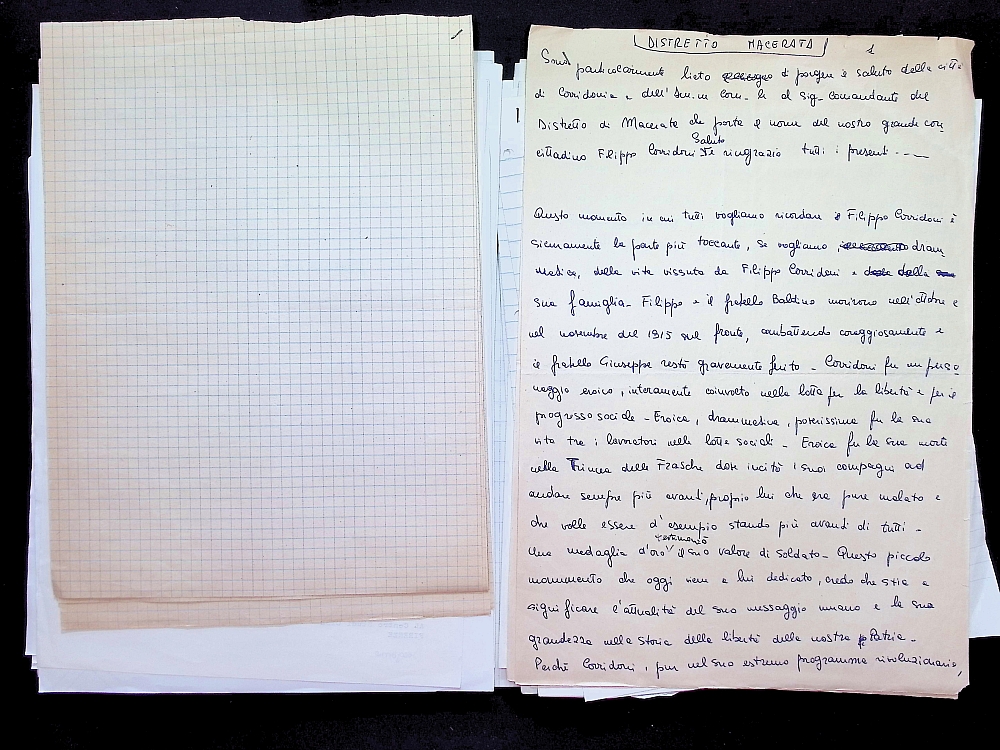 DISTRETTO MACERATA 1
Sono particolarmente lieto di porgere il saluto della città
di Corridonia e dell'Am.ne Com.le al Sig. Comandante del
Distretto di Macerata che porta il nome del nostro grande con
Saluto
cittadino Filippo Corridoni e ringrazio tutti i presenti . - . —
Questo momento in cui tutti vogliamo ricordare il Filippo Corridoni è
sicuramente la parte più toccante, se vogliamo, dram
matica, della vita vissuta da Filippo Corridoni e dalla
sua famiglia - Filippo e il fratello Baldino morirono nell'ottobre e
nel novembre del 1915 sul fronte, combattendo coraggiosamente e
il fratello Giuseppe restò gravemente ferito - Corridoni fu un perso
naggio eroico, interamente coinvolto nella lotta per la libertà e per il
progresso sociale - Eroica, drammatica, poverissima fu la sua
vita tra i lavoratori nelle lotte sociali - Eroica fu la sua morte
nella Trincea delle Frasche dove incitò i suoi compagni ad
andare sempre più avanti, proprio lui che era pure malato e
che volle essere d'esempio stando più avanti di tutti -
testimoniò
Una medaglia d'oro il suo valore di soldato - Questo piccolo
monumento che oggi viene a lui dedicato, credo che stia a
significare l'attualità del suo messaggio umano e la sua
grandezza nella storia della libertà della nostra Patria -
Perché Corridoni, pur nel suo estremo programma rivoluzionario,